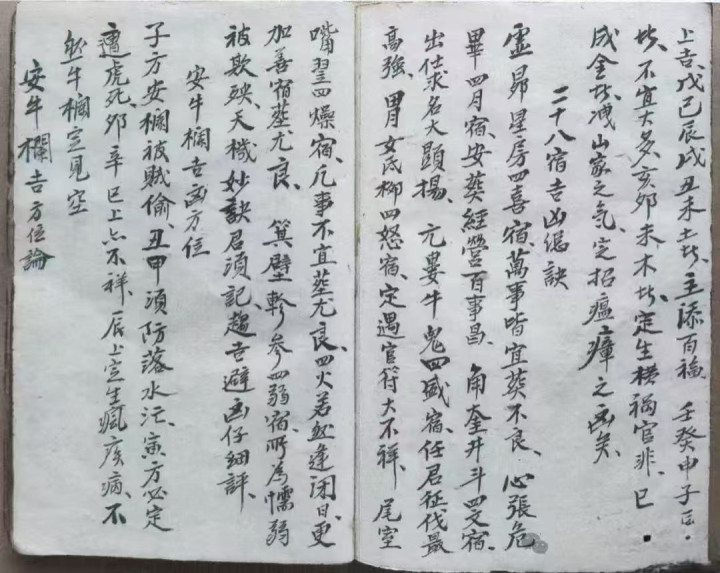 上吉、戊己辰戌丑未土牀、主添百福、壬癸申子
牀、不宜大多、亥卯未木牀、定生横禍官非、巳
成金牀、洩山家之氣、定招瘟瘴之凶矣、
二十八宿吉凶總訣
虛昴星房四喜宿、萬事皆宜葵不良、心張危
畢四月宿、安葵經營百事昌、角奎井斗四文宿、
出仕求名大顯揚、亢婁牛鬼四盛宿、任君征伐最
高強、胃女氐柳四怒宿、定過官符大不祥、尾室
嘴翌四燥宿、凡事不宜塟尤良、四火若然逢闭日、更
加善宿塟尤良、箕壁軫参四弱宿、所為懦弱
被欺殃、天機妙訣君須記、趨吉避凶仔細評、
安牛欄吉凶方位
子方安欄被賊偷、丑甲須防落水汇、寅方必定
遭虎死、夘辛巳上亦不祥、辰上定生瘋疾病、不
然牛欄空見空
安牛欄吉方位論